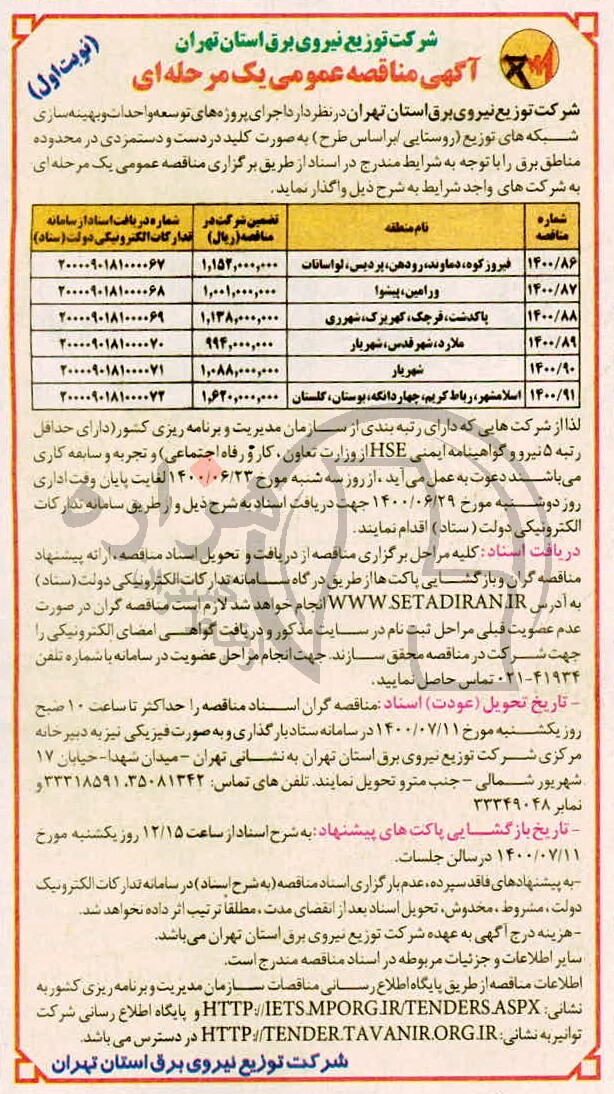 شرکت توزیع نیروی برق استان تهران
آگهی مناقصه عمومی یک مرحله ای
(نوبت اول)
شرکت توزیع نیروی برق استان تهران در نظر دارد اجرای پروژه های توسعه و احداث و بهینه سازی
شبکه های توزیع (روستایی /براساس طرح) به صورت کلید در دست و دستمزدی در محدوده
مناطق برق را با توجه به شرایط مندرج در اسناد از طریق برگزاری مناقصه عمومی یک مرحله ای
به شرکت های واجد شرایط به شرح ذیل واگذار نماید.
شماره مناقصه | نام منطقه | تضمین شرکت در مناقصه (ریال) | شماره دریافت اسناد از سامانه تدارکات الکترونیکی دولت (ستاد)
۱۴۰۰/۸۶ | فیروزکوه، دماوند، رودهن، پردیس، لواسانات | ۱,۱۵۲,۰۰۰,۰۰۰ | ۲۰۰۰۰۹۰۱۸۱۰۰۰۰۶۷
۱۴۰۰/۸۷ | ورامین، پیشوا | ۱,۰۰۱,۰۰۰,۰۰۰ | ۲۰۰۰۰۹۰۱۸۱۰۰۰۰۶۸
۱۴۰۰/۸۸ | پاکدشت، قرچک، کهریزک، شهرری | ۱,۱۳۸,۰۰۰,۰۰۰ | ۲۰۰۰۰۹۰۱۸۱۰۰۰۰۶۹
۱۴۰۰/۸۹ | ملارد، شهرقدس، شهریار | ۹۹۴,۰۰۰,۰۰۰ | ۲۰۰۰۰۹۰۱۸۱۰۰۰۰۷۰
۱۴۰۰/۹۰ | شهریار | ۱,۰۸۸,۰۰۰,۰۰۰ | ۲۰۰۰۰۹۰۱۸۱۰۰۰۰۷۱
۱۴۰۰/۹۱ | اسلامشهر، رباط کریم، چهاردانگه، بوستان، گلستان | ۱,۶۲۰,۰۰۰,۰۰۰ | ۲۰۰۰۰۹۰۱۸۱۰۰۰۰۷۲
لذا از شرکت هایی که دارای رتبه بندی از سازمان مدیریت و برنامه ریزی کشور (دارای حداقل
رتبه ۵ نیرو و گواهینامه ایمنی HSE از وزارت تعاون، کار و رفاه اجتماعی) و تجربه و سابقه کاری
می باشند دعوت به عمل می آید، از روز سه شنبه مورخ ۱۴۰۰/۰۶/۲۳ لغایت پایان وقت اداری
روز دوشنبه مورخ ۱۴۰۰/۰۶/۲۹ جهت دریافت اسناد به شرح ذیل و از طریق سامانه تدارکات
الکترونیکی دولت (ستاد) اقدام نمایند.
دریافت اسناد: کلیه مراحل برگزاری مناقصه از دریافت و تحویل اسناد مناقصه، ارائه پیشنهاد
مناقصه گران و بازگشایی پاکت ها از طریق درگاه سامانه تدارکات الکترونیکی دولت (ستاد)
به آدرس WWW.SETADIRAN.IR انجام خواهد شد لازم است مناقصه گران در صورت
عدم عضویت قبلی مراحل ثبت نام در سایت مذکور و دریافت گواهی امضای الکترونیکی را
جهت شرکت در مناقصه محقق سازند. جهت انجام مراحل عضویت در سامانه با شماره تلفن
۰۲۱-۴۱۹۳۴ تماس حاصل نمایید.
- تاریخ تحویل (عودت) اسناد: مناقصه گران اسناد مناقصه را حداکثر تا ساعت ۱۰ صبح
روز یکشنبه مورخ ۱۴۰۰/۰۷/۱۱ در سامانه ستاد بارگذاری و به صورت فیزیکی نیز به دبیرخانه
مرکزی شرکت توزیع نیروی برق استان تهران به نشانی تهران - میدان شهدا- خیابان ۱۷
شهریور شمالی - جنب مترو تحویل نمایند. تلفن های تماس: ۳۵۰۸۱۳۴۲، ۳۳۳۱۸۵۹۱ و
نمابر ۳۳۳۴۹۰۴۸
- تاریخ بازگشایی پاکت های پیشنهاد: به شرح اسناد از ساعت ۱۲/۱۵ روز یکشنبه مورخ
۱۴۰۰/۰۷/۱۱ در سالن جلسات.
-به پیشنهادهای فاقد سپرده، عدم بارگزاری اسناد مناقصه (به شرح اسناد) در سامانه تدارکات الکترونیک
دولت، مشروط، مخدوش، تحویل اسناد بعد از انقضای مدت، مطلقا ترتیب اثر داده نخواهد شد.
-هزینه درج آگهی به عهده شرکت توزیع نیروی برق استان تهران می باشد.
سایر اطلاعات و جزئیات مربوطه در اسناد مناقصه مندرج است.
اطلاعات مناقصه از طریق پایگاه اطلاع رسانی مناقصات سازمان مدیریت و برنامه ریزی کشور به
نشانی: HTTP://IETS.MPORG.IR/TENDERS.ASPX و پایگاه اطلاع رسانی شرکت
توانیر به نشانی: HTTP://TENDER.TAVANIR.ORG.IR در دسترس می باشد.
شرکت توزیع نیروی برق استان تهران